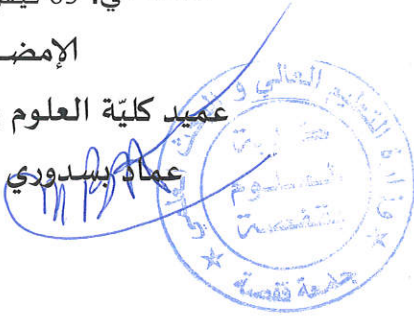 الإمضـ
عميد كليّة العلوم
عماد بسدوري
وزارة التعليم العالي و البحث العلمي
كلية
العلوم
بقفصة
جامعة قفصة